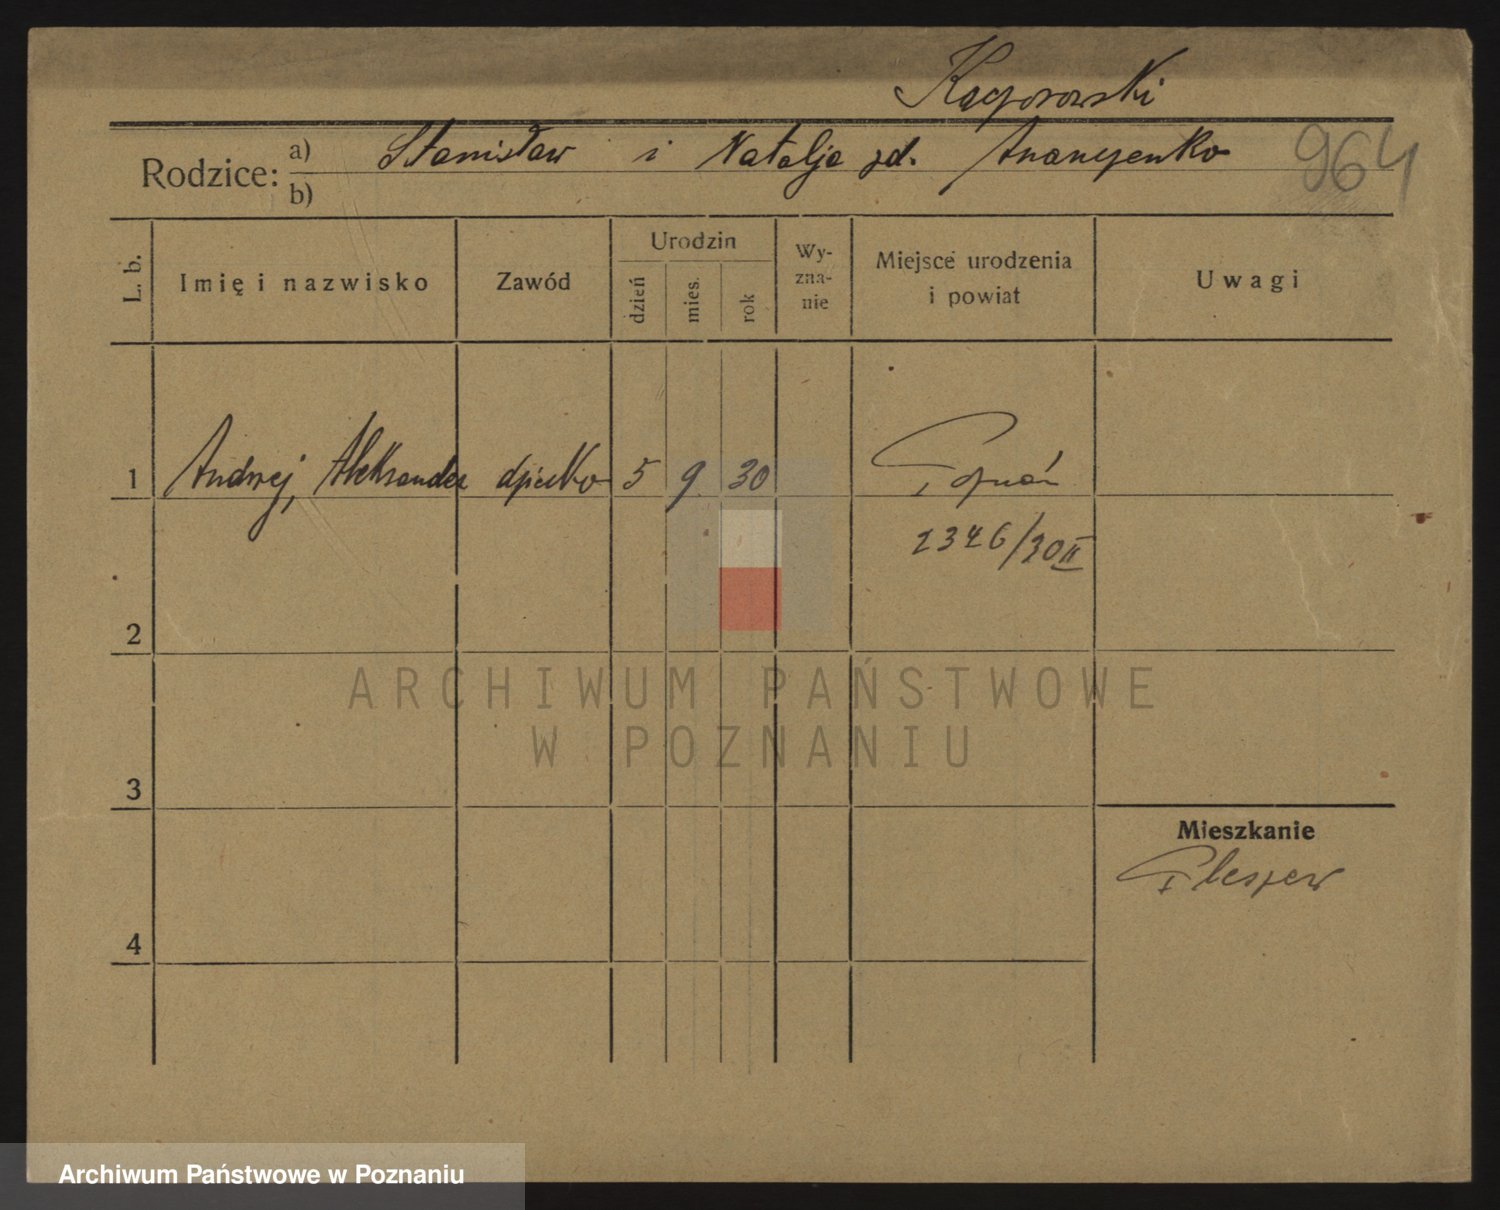 Kaczorowski
Rodzice: a) Stanisław i Natalja zd. Ananczenko 964
b)
L. b. Imię i nazwisko Zawód Urodzin dzień mies. rok Wy-zna-nie Miejsce urodzenia i powiat Uwagi
1 Andrzej, Aleksander dziecko 5 9 30 Poznań
2346/30 II
2
ARCHIWUM PAŃSTWOWE
W POZNANIU
3
Mieszkanie
Pleszew
4
Archiwum Państwowe w Poznaniu